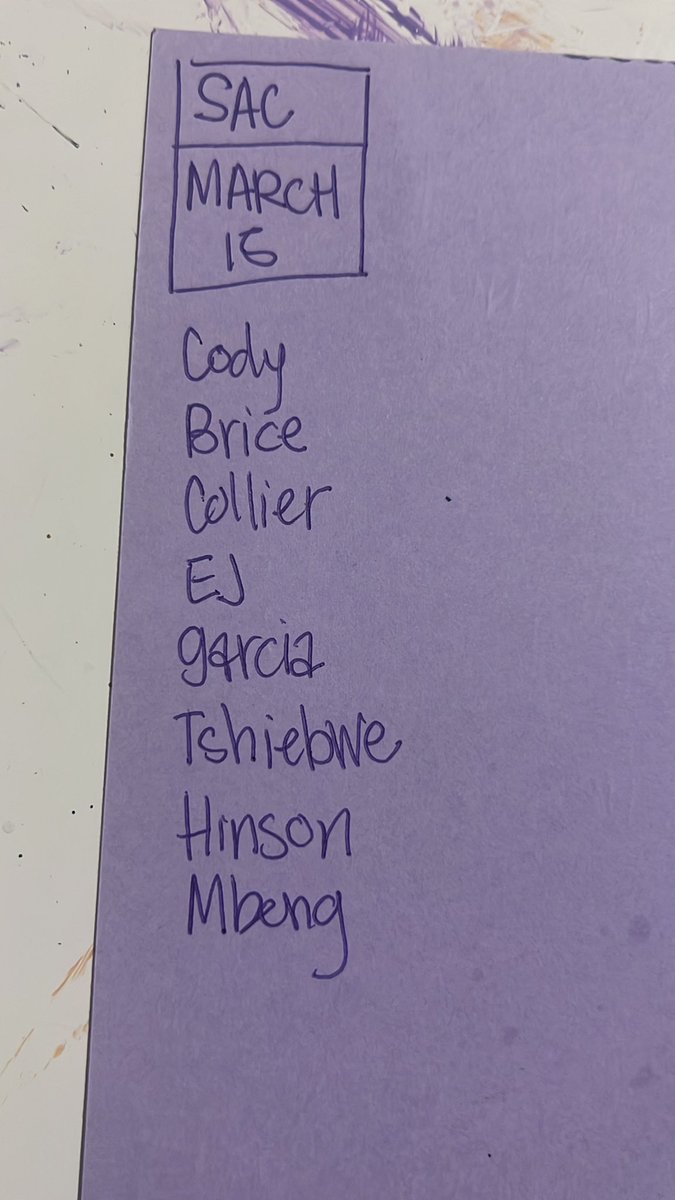 SAC
MARCH
15
Cody
Brice
Collier
EJ
garcia
Tshiebwe
Hinson
Mbeng